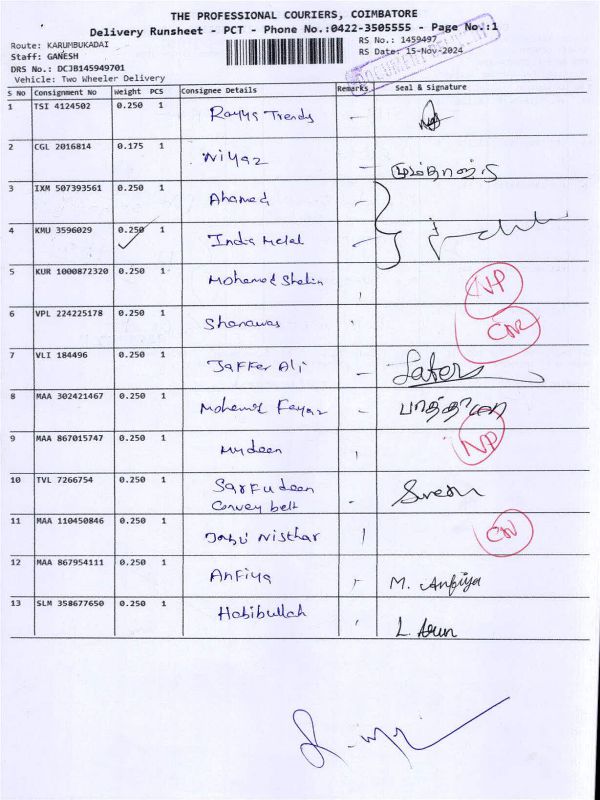 THE PROFESSIONAL COURIERS, COIMBATORE
Delivery Runsheet - PCT - Phone No.:0422-3505555 - Page No.:1
Route: KARUMBUKADAI RS No.: 1459497
Staff: GANESH RS Date: 15-Nov-2024
DRS No.: DCJB145949701
Vehicle: Two Wheeler Delivery
S No Consignment No Weight PCS Consignee Details Remarks Seal & Signature
1 TSI 4124502 0.250 1 Trends
2 CGL 2016814 0.175 1 Niyaz
3 IXM 507393561 0.250 1 Ahamed
4 KMU 3596029 0.250 1 India Metal
5 KUR 1000872320 0.250 1 Mohamed NP
6 VPL 224225178 0.250 1 Shanawas
7 VLI 184496 0.250 1 Jaffer Ali
8 MAA 302421467 0.250 1 Mohamed Fayaz
9 MAA 867015747 0.250 1 Mydeen NP
10 TVL 7266754 0.250 1 Sarfudeen
Convey belt
11 MAA 110450846 0.250 1 Nisthar
12 MAA 867954111 0.250 1 Anfiya M. Anfiya
13 SLM 358677650 0.250 1 Habibullah L. Arun